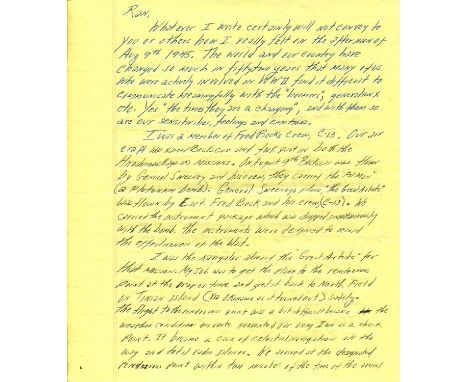 Ron,
Whatever I write certainly will not convey to
you or others how I really felt on the afternoon of
Aug 9th 1945. The world and our country have
changed so much in fifty two years that many of us
who were actively involved in WWII find it difficult to
communicate meaningfully with the "boomers", generation X
etc. Yes "the times they are a changing", and with them so
are our sensitivities, feelings and emotions.
I was a member of Fred Bocks Crew, C-13. Our air
craft was named Bockscar and took part in both the
Hiroshima Nagasaki missions. On August 9th Bockscar was flown
by General Sweeney and his crew, they carried the Fatman
(a Plutonium bomb). General Sweeneys plane, "the Great Artiste"
was flown by Fred Bock and his crew (C-13). We
carried the instrument package which was dropped simultaneously
with the bomb. The instruments were designed to record
the effectiveness of the blast.
I was the navigator aboard the "Great Artiste" for
that mission. My Job was to get the plane to the rendezvous
point at the proper time and get it back to North Field
on Tinian Island (via Okinawa as it turned out) safely.
The flight to the rendezvous point was a bit difficult because the
weather condition en route presented our using Iwo as a check
point. It became a case of celestial navigation all the
way and total radio silence. We arrived at the designated
rendezvous point within two minutes of the time of the